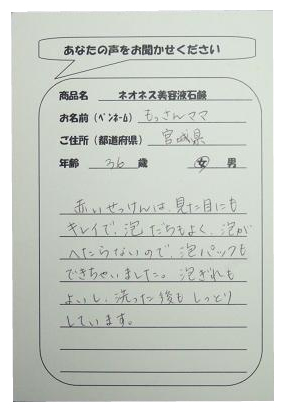 あなたの声をお聞かせください
商品名 ネオネス美容液石鹸
お名前（ペンネーム） もっさんママ
ご住所（都道府県） 宮城県
年齢 36 歳 女 男
赤いせっけんは、見た目にも
キレイで、泡だちもよく、泡が
へたらないので、泡パックも
できちゃいました。泡ぎれも
よいし、洗った後もしっとり
しています。